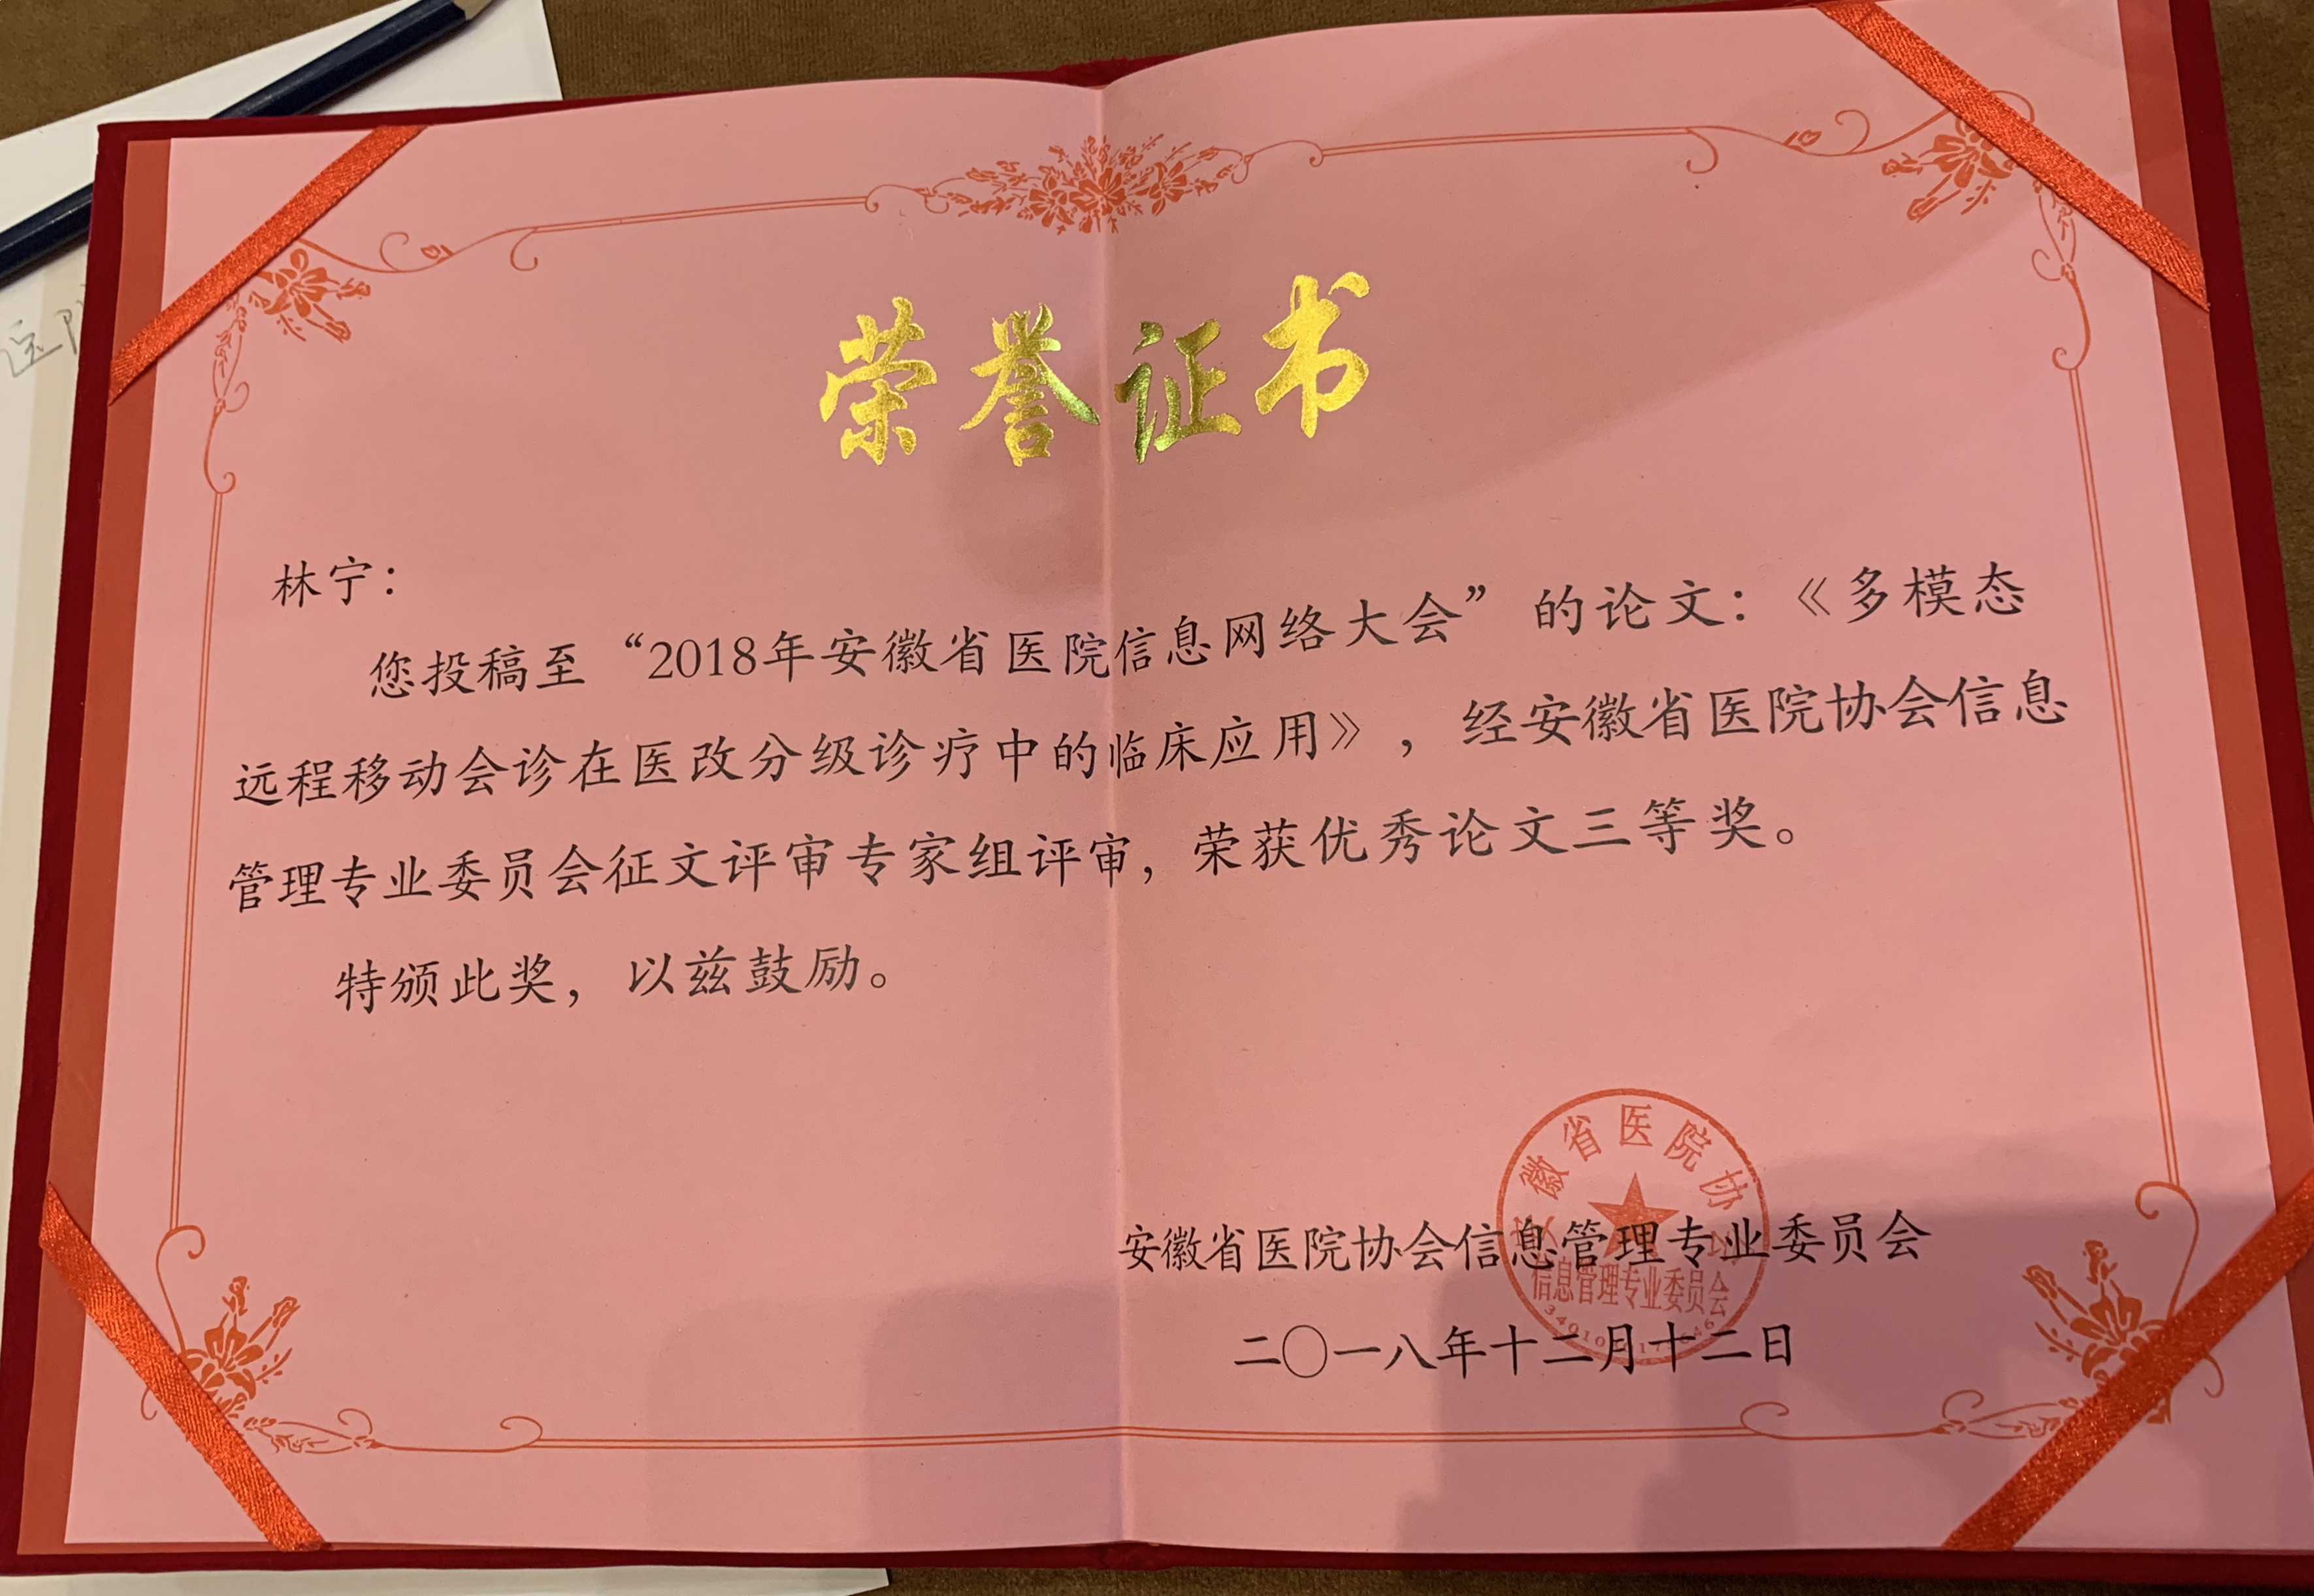 荣誉证书
林宁：
您投稿至“2018年安徽省医院信息网络大会”的论文：《多模态
远程移动会诊在医改分级诊疗中的临床应用》，经安徽省医院协会信息
管理专业委员会征文评审专家组评审，荣获优秀论文三等奖。
特颁此奖，以兹鼓励。
安徽省医院协会
安徽省医院协会信息管理专业委员会
信息管理专业委员会
二〇一八年十二月十二日